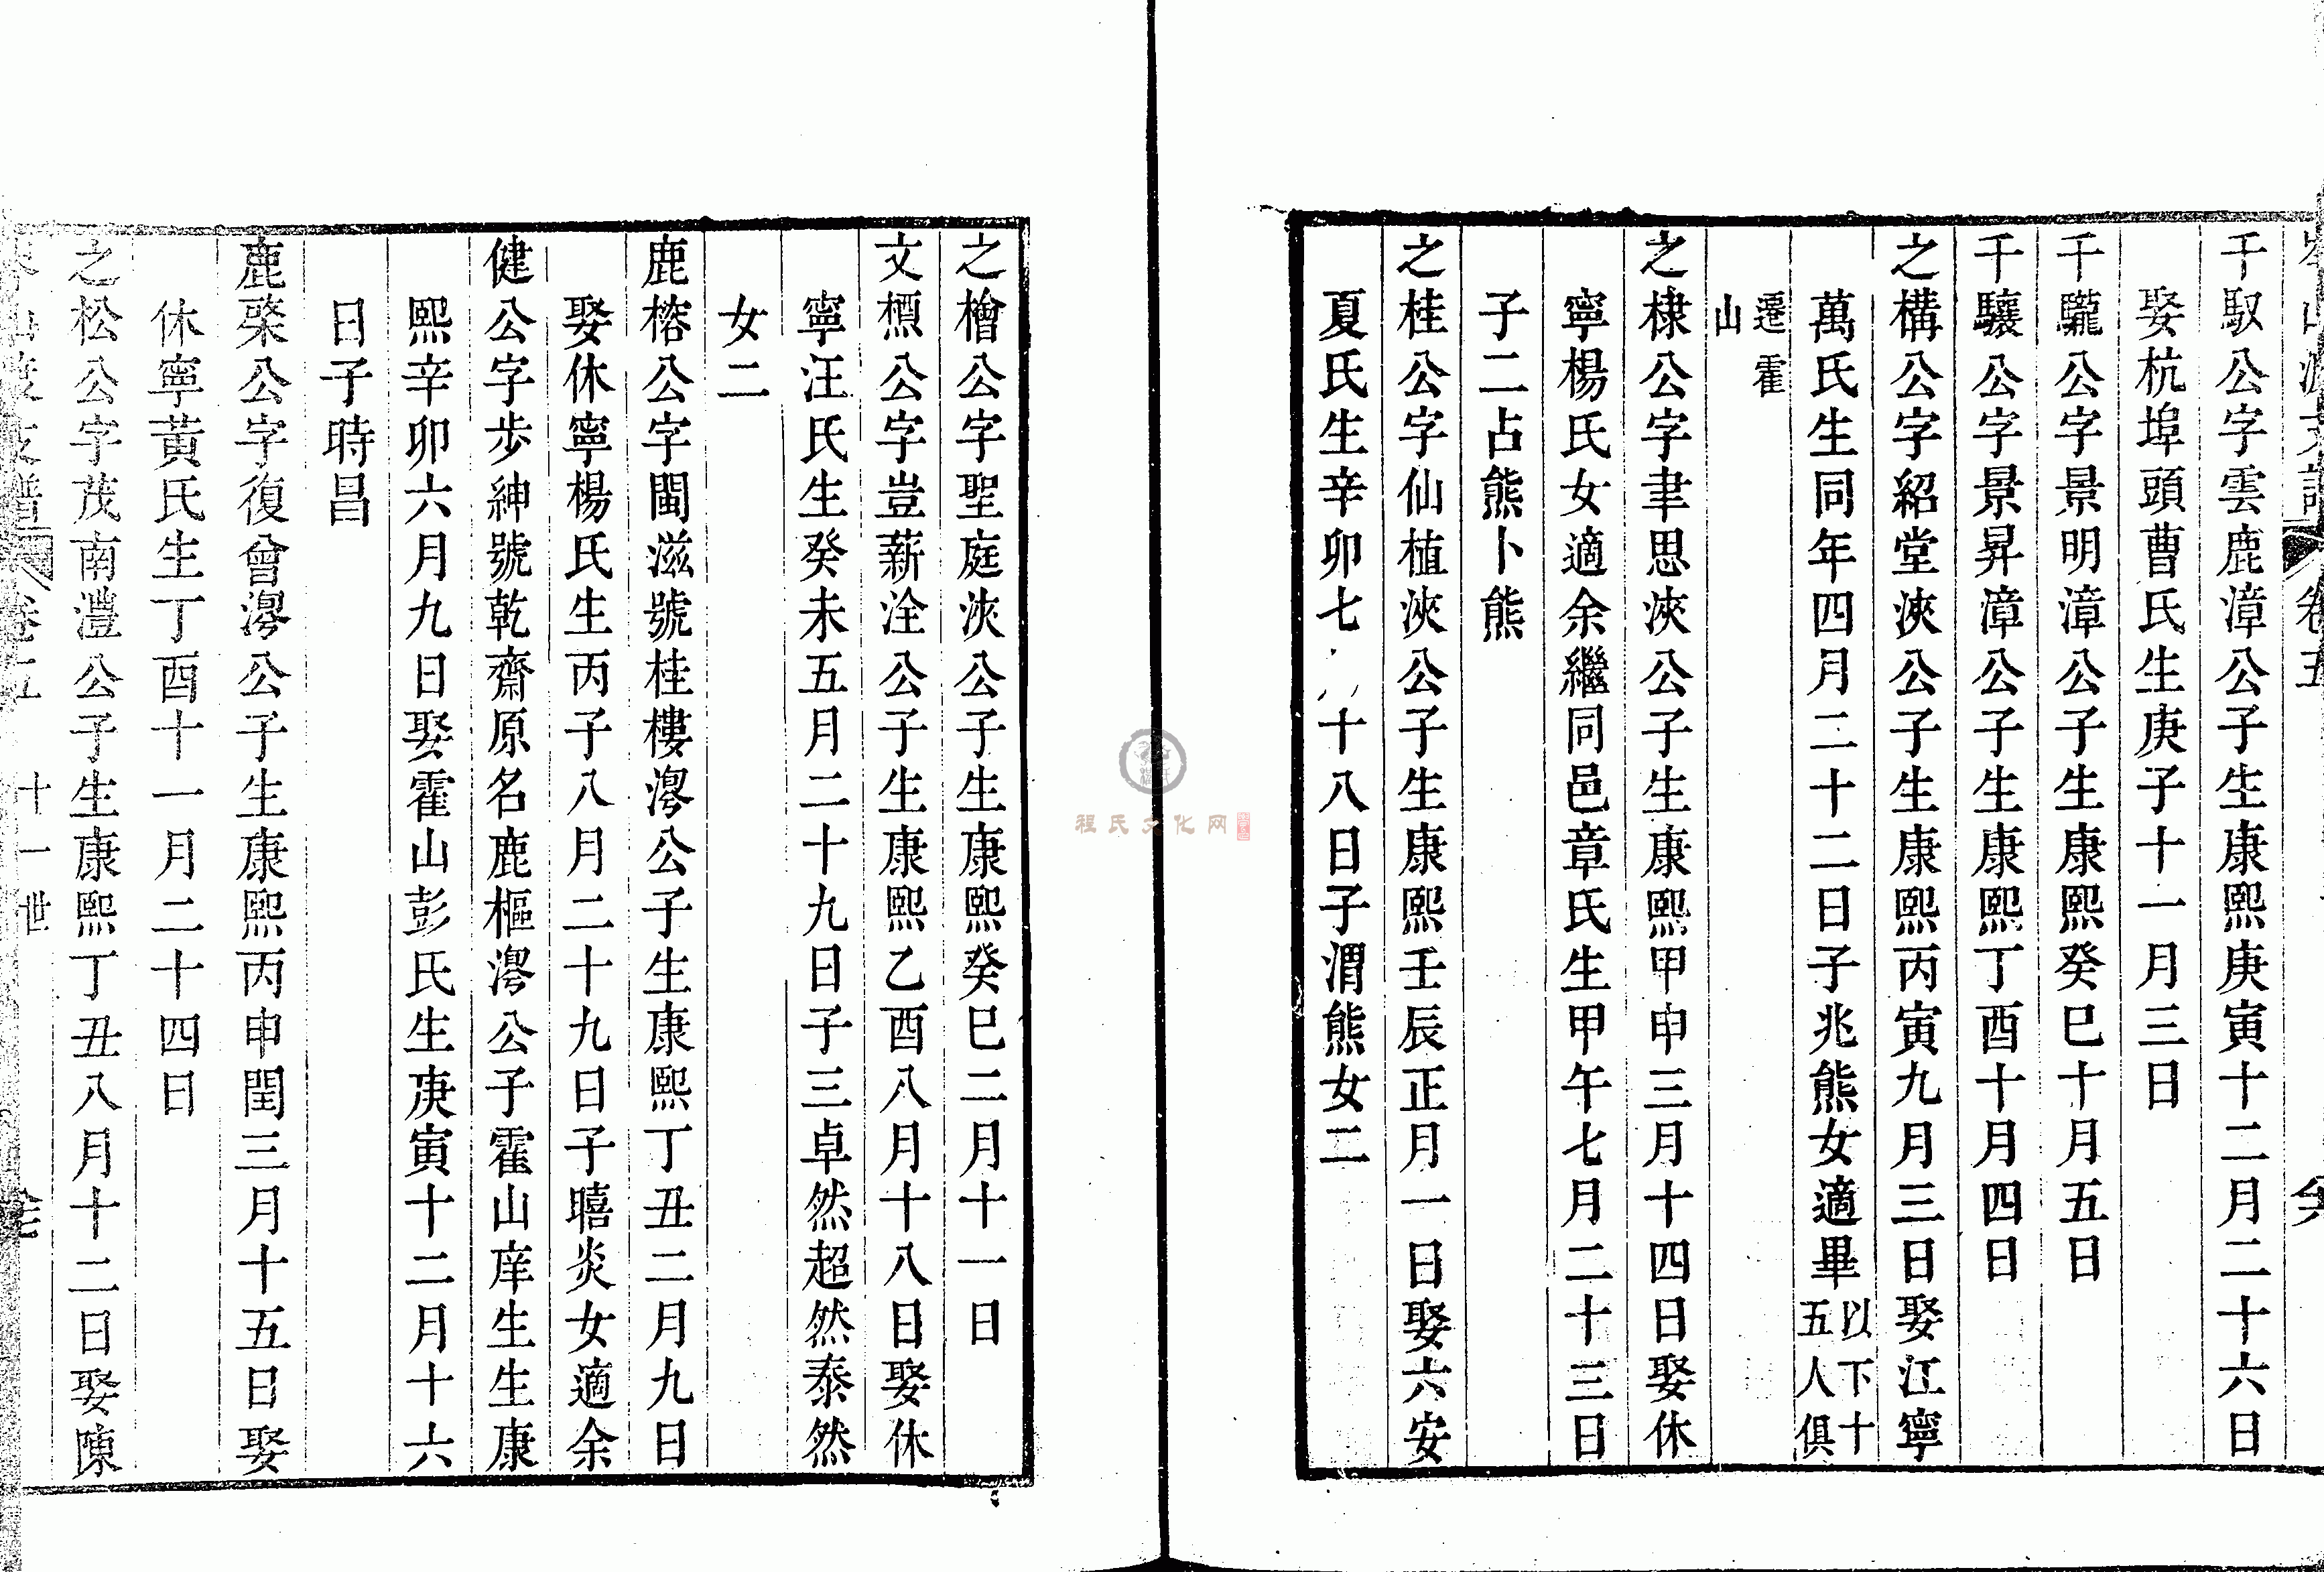 千馭公字雲鹿漳公子生康熙庚寅十二月二十六日
娶杭埠頭曹氏生庚子十一月三日
千驪公字景明漳公子生康熙癸巳十月五日
千驤公字景昇漳公子生康熙丁酉十月四日
之構公字紹堂浹公子生康熙丙寅九月三日娶江寧
萬氏生同年四月二十二日子兆熊女適畢以下十
五人俱
遷霍
山
之棣公字聿思浹公子生康熙甲申三月十四日娶休
寧楊氏女適余繼同邑章氏生甲午七月二十三日
子二占熊卜熊
之桂公字仙植浹公子生康熙壬辰正月一日娶六安
夏氏生辛卯七 十八日子渭熊女二
之檜公字聖庭浹公子生康熙癸巳二月十一日
文標公字豈薪洤公子生康熙乙酉八月十八日娶休
寧汪氏生癸未五月二十九日子三卓然超然泰然
女二
鹿榕公字聞滋號桂樓漻公子生康熙丁丑二月九日
娶休寧楊氏生丙子八月二十九日子暿炎女適余
健公字步紳號乾齋原名鹿樞漻公子霍山庠生生康
熙辛卯六月九日娶霍山彭氏生庚寅十二月十六
日子時昌
鹿棨公字復曾漻公子生康熙丙申閏三月十五日娶
休寧黃氏生丁酉十一月二十四日
之松公字茂南灃公子生康熙丁丑八月十二日娶陳
十一世
程氏文化网